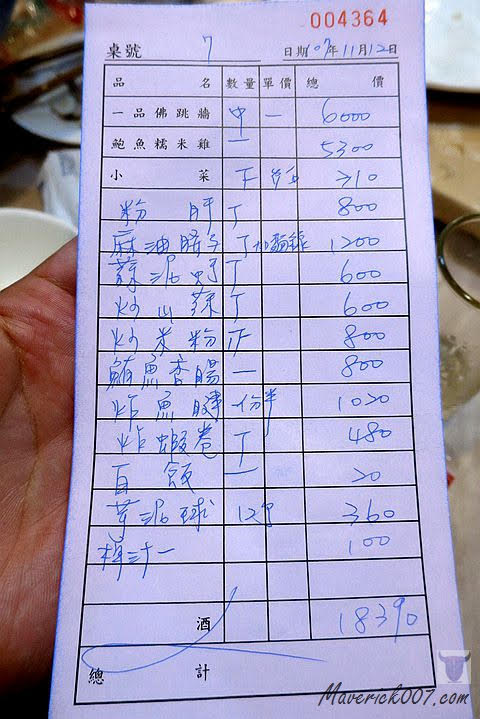 004364
桌號 7 日期107年11月12日
品名 數量 單價 總價
一品佛跳牆 中 一 6000
鮑魚糯米雞 一 5300
小菜 310
粉肝 丁 800
麻油腰子 丁 加麵線 1200
蒜泥蚵 丁 600
炒山蘇 丁 600
炒米粉 800
鮪魚香腸 一 800
炸魚 一份半 1020
炸蝦卷 丁 480
白飯 一 20
芋泥球 12 360
汁一 100
酒 18390
總計
Maverick007.com